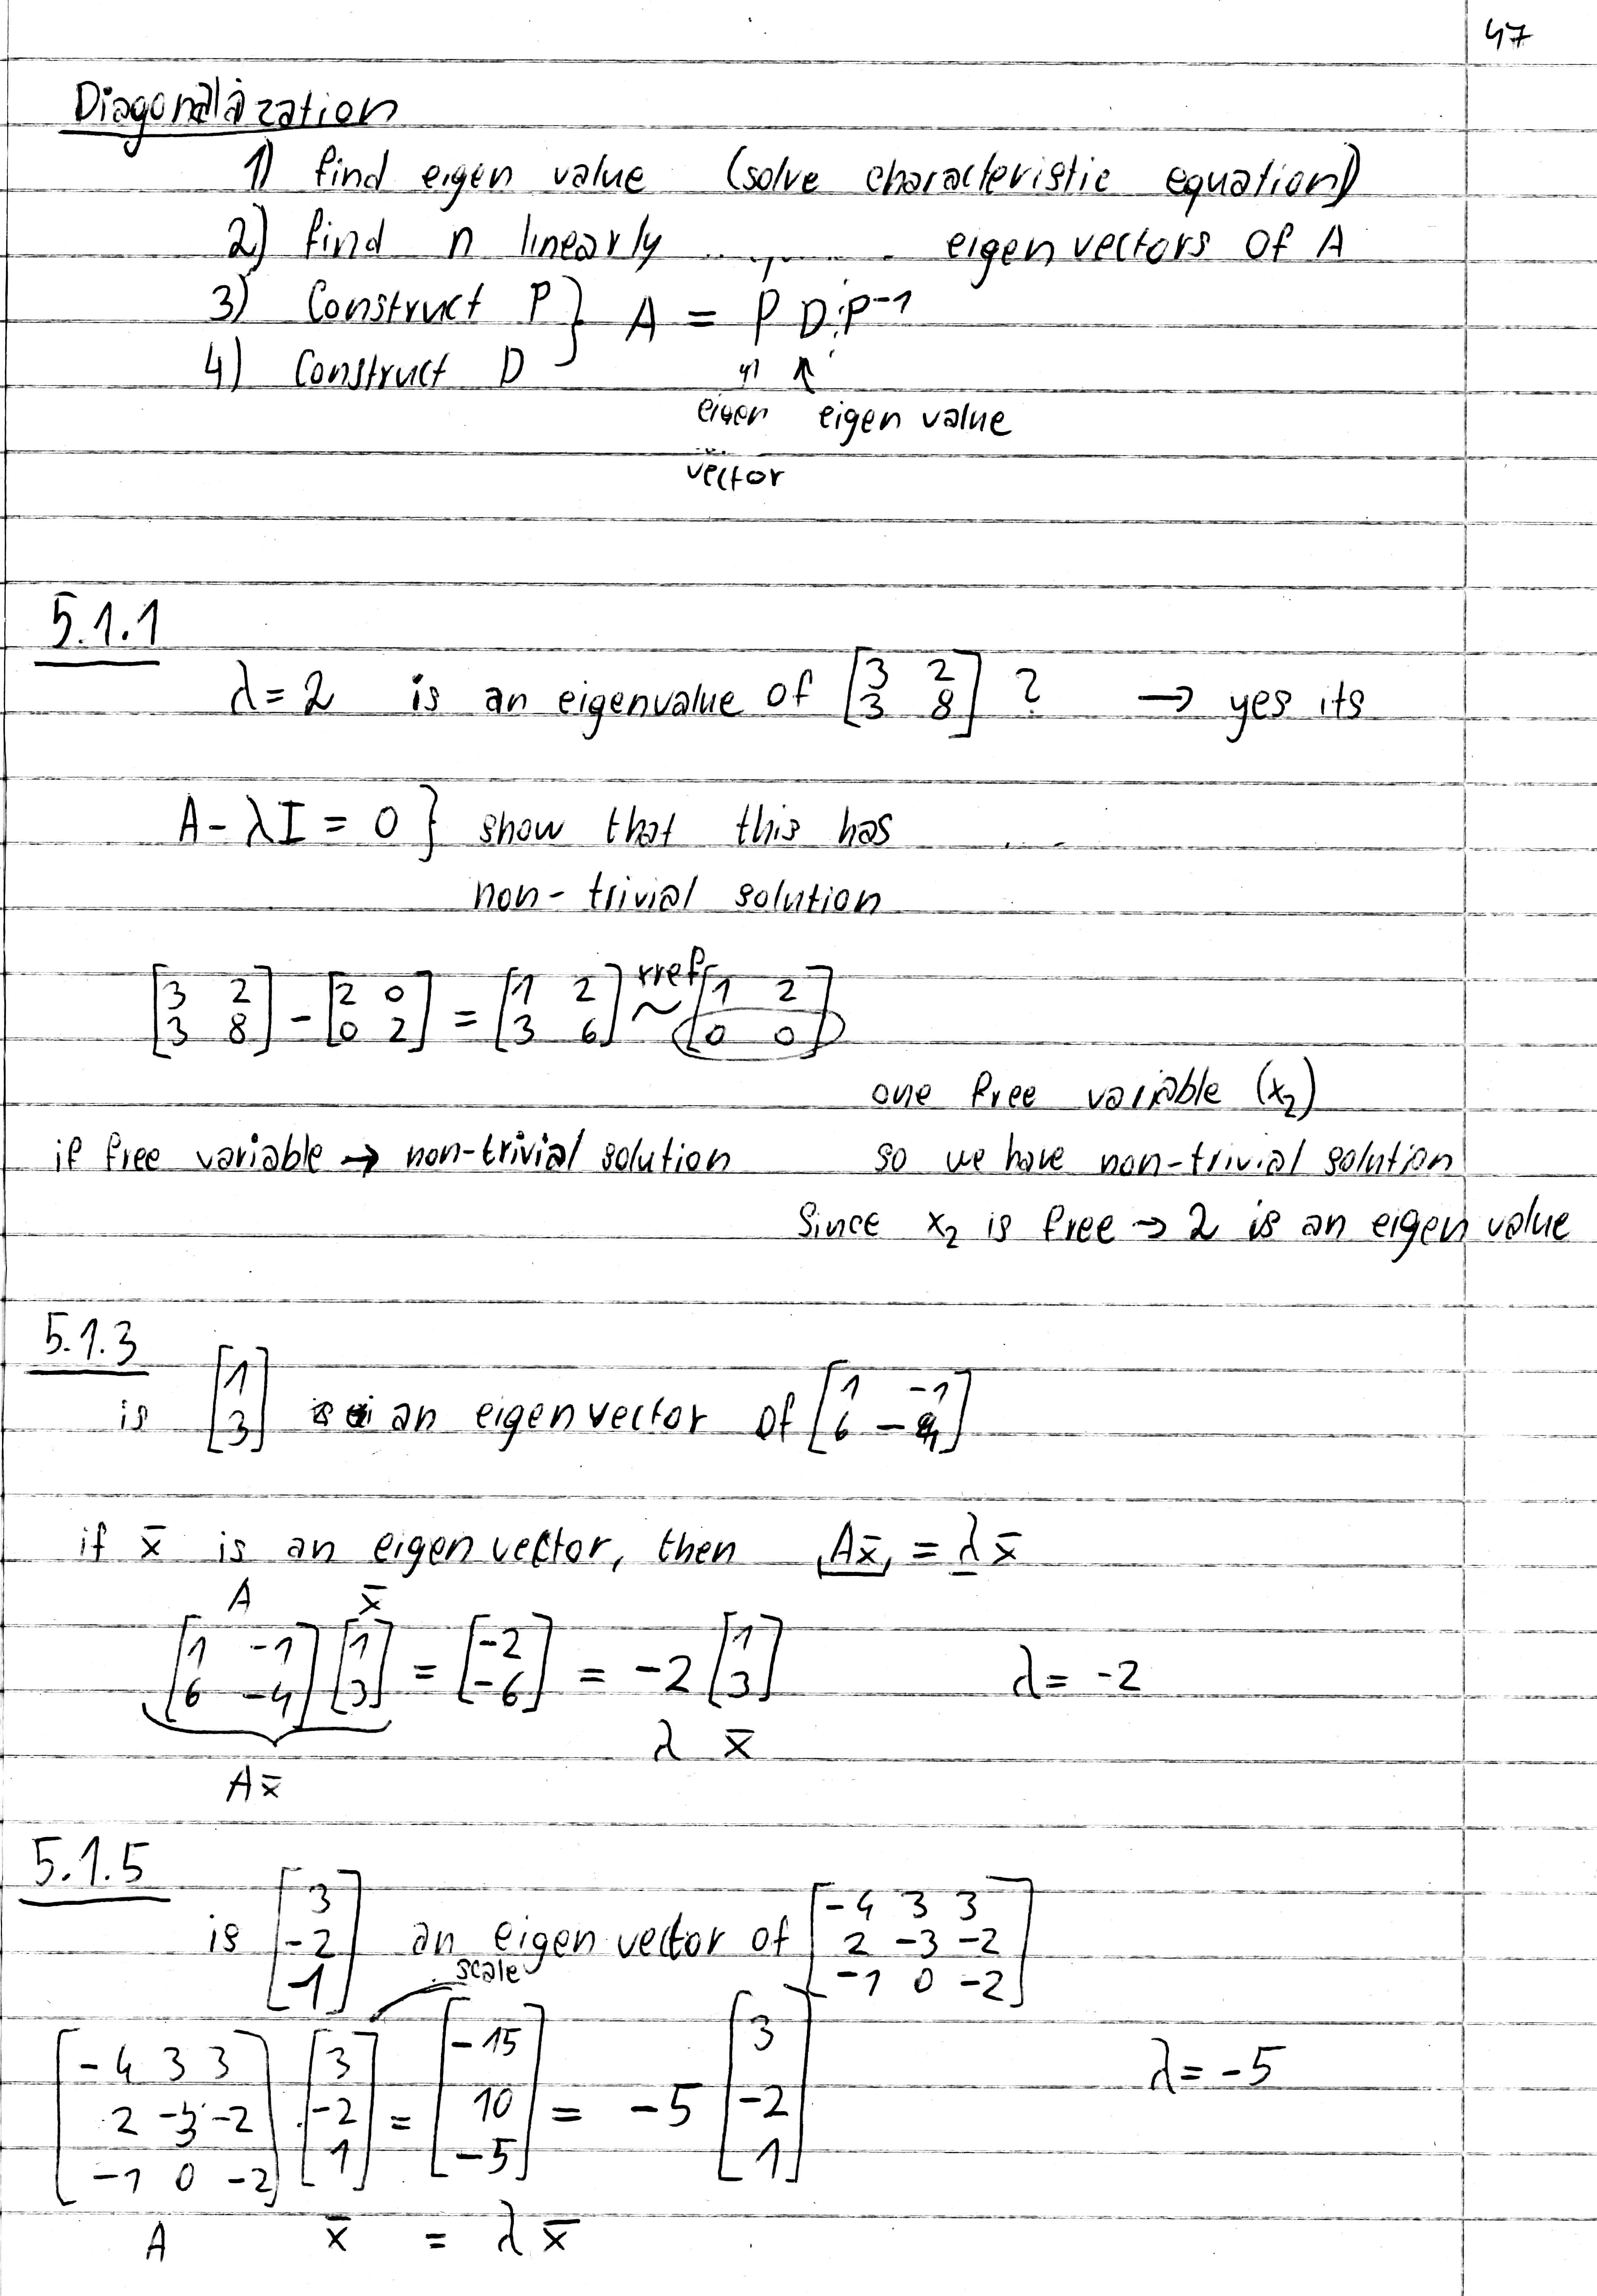 47
Diagonalization
1) find eigen value (solve characteristic equation)
2) find n linearly ......... eigenvectors of A
3) Construct P } A = P D P⁻¹
4) Construct D
eigen eigen value
vector
5.1.1
λ = 2 is an eigenvalue of [3 2; 3 8] ? → yes its
A - λI = 0 } show that this has
non-trivial solution
[3 2; 3 8] - [2 0; 0 2] = [1 2; 3 6] rref ~ [1 2; 0 0]
one free variable (x₂)
if free variable → non-trivial solution so we have non-trivial solution
Since x₂ is free → 2 is an eigen value
5.1.3
is [1; 3] an eigenvector of [1 -1; 6 -4]
if x̄ is an eigen vector, then Ax̄ = λx̄
A x̄
[1 -1; 6 -4] [1; 3] = [-2; -6] = -2 [1; 3] λ = -2
λ x̄
Ax̄
5.1.5
is [3; -2; 1] an eigen vector of [-4 3 3; 2 -3 -2; -1 0 -2]
scale
[-4 3 3; 2 -3 -2; -1 0 -2] [3; -2; 1] = [-15; 10; -5] = -5 [3; -2; 1] λ = -5
A x̄ = λ x̄